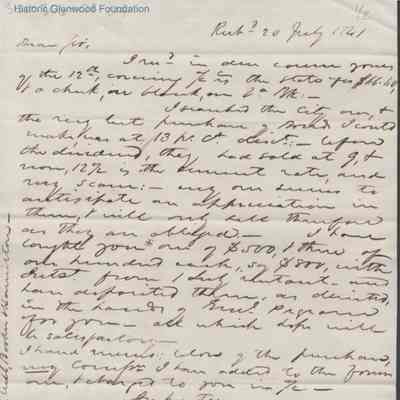 Historic Glenwood Foundation
Rich^d 20 July 1841
Dear Sir,
I rec^d in due course yours
of the 12th, covering
& a check, on
I searched the City over, &
the very best purchase of Bonds I could
make was at 13 pr Ct disct: - before
the dividend, they had sold at 9, &
now, 12% is the current rate, and
very scarce: - every one seems to
anticipate an appreciation in
them, & will only sell therefore
as they are obliged. - I have
bought you one of $500, & three of
one hundred each, say $800, with
intst from 1 July instant - and
have deposited them, as desired,
in the hands of
for you - all which I hope will
be satisfactory -
of the purchase,
my I have added to the former
one, & charged to you in a/c -